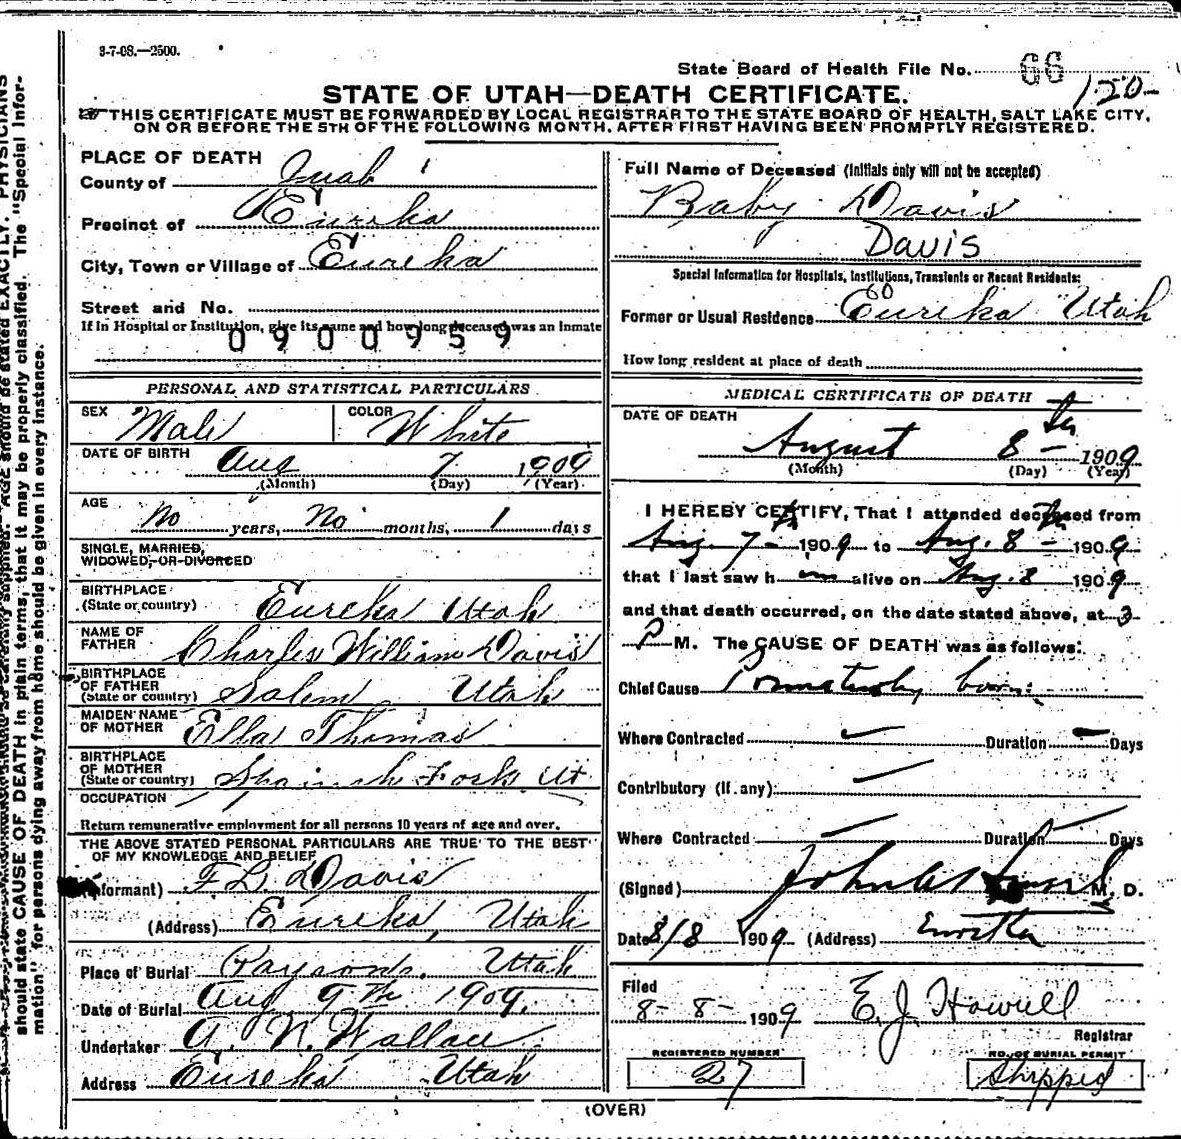 3-7-08.—2500.
State Board of Health File No. 66
120-
STATE OF UTAH—DEATH CERTIFICATE.
THIS CERTIFICATE MUST BE FORWARDED BY LOCAL REGISTRAR TO THE STATE BOARD OF HEALTH, SALT LAKE CITY,
ON OR BEFORE THE 5TH OF THE FOLLOWING MONTH, AFTER FIRST HAVING BEEN PROMPTLY REGISTERED.
PLACE OF DEATH
County of Juab
Precinct of Eureka
City, Town or Village of Eureka
Street and No.
If in Hospital or Institution, give its name and how long deceased was an Inmate
0900959
PERSONAL AND STATISTICAL PARTICULARS
SEX Male COLOR White
DATE OF BIRTH Aug 7 1909
(Month) (Day) (Year)
AGE No years, No months, 1 days
SINGLE, MARRIED,
WIDOWED, OR DIVORCED
BIRTHPLACE
(State or country) Eureka Utah
NAME OF
FATHER Charles William Davis
BIRTHPLACE
OF FATHER
(State or country) Salem Utah
MAIDEN NAME
OF MOTHER Ella Thomas
BIRTHPLACE
OF MOTHER
(State or country) Spanish Fork Ut
OCCUPATION
Return remunerative employment for all persons 10 years of age and over.
THE ABOVE STATED PERSONAL PARTICULARS ARE TRUE TO THE BEST
OF MY KNOWLEDGE AND BELIEF
(Informant) F L Davis
(Address) Eureka, Utah
Place of Burial Payson. Utah
Date of Burial Aug 9th 1909.
Undertaker A. N. Wallace
Address Eureka Utah
Full Name of Deceased (Initials only will not be accepted)
Baby Davis
Davis
Special Information for Hospitals, Institutions, Transients or Recent Residents:
Former or Usual Residence Eureka Utah
How long resident at place of death
MEDICAL CERTIFICATE OF DEATH
DATE OF DEATH
August 8th 1909
(Month) (Day) (Year)
I HEREBY CERTIFY, That I attended deceased from
Aug. 7th 1909 to Aug. 8th 1909
that I last saw him alive on Aug. 8 1909
and that death occurred, on the date stated above, at 3
P M. The CAUSE OF DEATH was as follows:
Chief Cause born.
Where Contracted Duration Days
Contributory (if any):
Where Contracted Duration Days
(Signed) John M. D.
Date 8/8 1909 (Address) Eureka
Filed
8-8-1909 E. J. Howell
Registrar
REGISTERED NUMBER
27
NO. OF BURIAL PERMIT
Shipped
(OVER)
should state CAUSE OF DEATH in plain terms, that it may be properly classified. The "Special Infor-
mation" for persons dying away from home should be given in every instance.